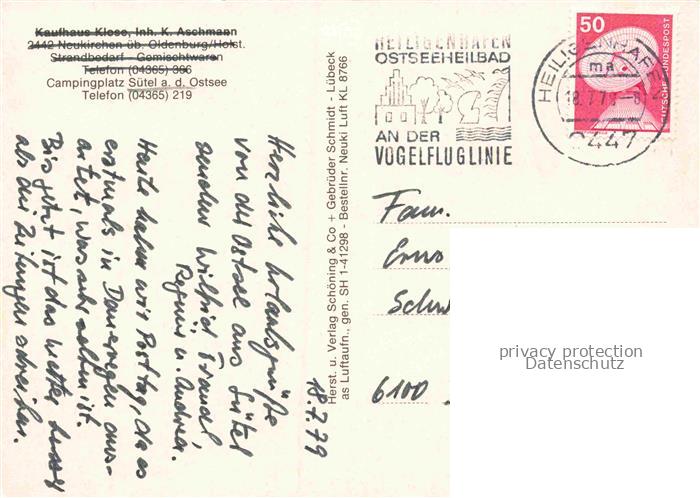 Kaufhaus Klose, Inh. K. Aschmann
2442 Neukirchen üb. Oldenburg/Holst.
Strandbedarf - Gemischtwaren
Telefon (04365) 366
Campingplatz Sütel a. d. Ostsee
Telefon (04365) 219
18.7.79
Herzliche Urlaubsgrüße
von der Ostsee aus Sütel
senden Wilfried, Traudel,
Regina u. Andrea.
Heute haben wir Posttag, da es
erstmals in Dauerregen aus-
artet, was sehr selten ist.
Bis jetzt ist das Wetter besser
als die Zeitungen schreiben.
Herst. u. Verlag Schöning & Co + Gebrüder Schmidt - Lübeck
as Luftaufn., gen. SH 1-41298 - Bestellnr. Neuki Luft KL 8766
HEILIGENHAFEN
OSTSEEHEILBAD
AN DER
VOGELFLUGLINIE
HEILIGENHAFEN
ma
18.7.79
2447
50
DEUTSCHE BUNDESPOST
Fam.
6100
privacy protection
Datenschutz